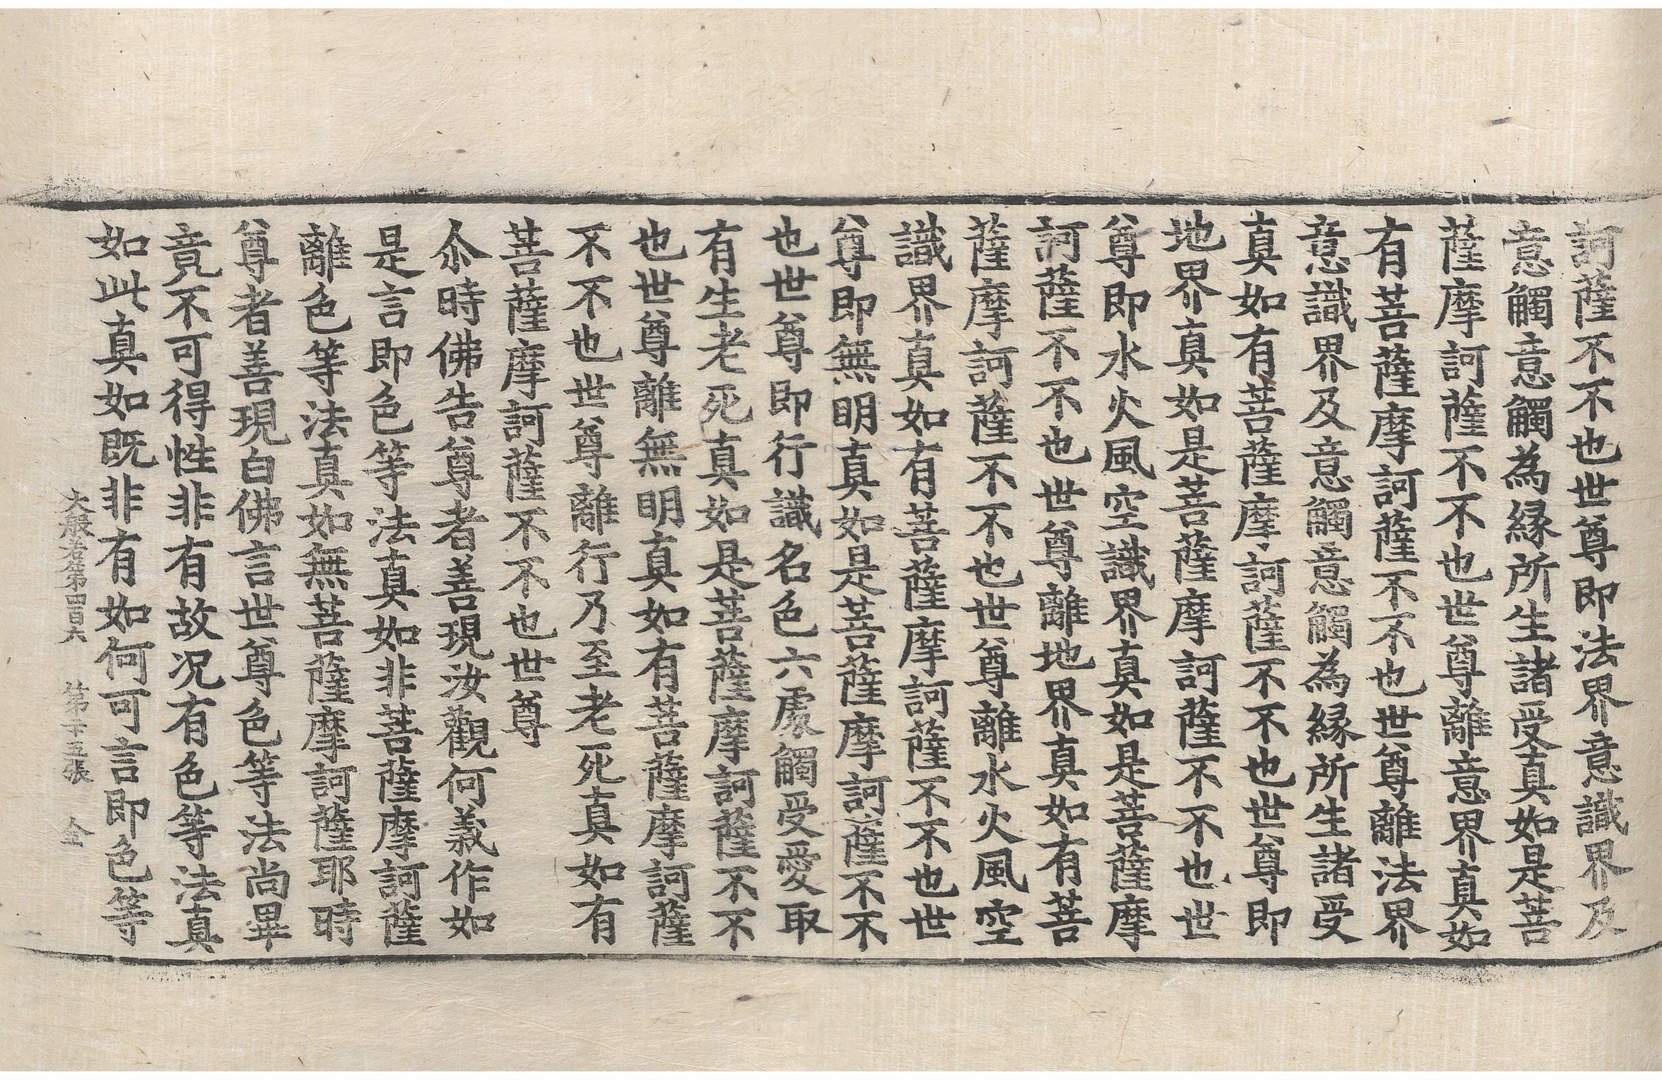 訶薩不不也世尊即法界意識界及
意觸意觸為緣所生諸受真如是菩
薩摩訶薩不不也世尊離意界真如
有菩薩摩訶薩不不也世尊離法界
意識界及意觸意觸為緣所生諸受
真如有菩薩摩訶薩不不也世尊即
地界真如是菩薩摩訶薩不不也世
尊即水火風空識界真如是菩薩摩
訶薩不不也世尊離地界真如有菩
薩摩訶薩不不也世尊離水火風空
識界真如有菩薩摩訶薩不不也世
尊即無明真如是菩薩摩訶薩不不
也世尊即行識名色六處觸受愛取
有生老死真如是菩薩摩訶薩不不
也世尊離無明真如有菩薩摩訶薩
不不也世尊離行乃至老死真如有
菩薩摩訶薩不不也世尊
尒時佛告尊者善現汝觀何義作如
是言即色等法真如非菩薩摩訶薩
離色等法真如無菩薩摩訶薩耶時
尊者善現白佛言世尊色等法尚畢
竟不可得性非有故况有色等法真
如此真如旣非有如何可言即色等
大般若第四百六 第二十五張 仝